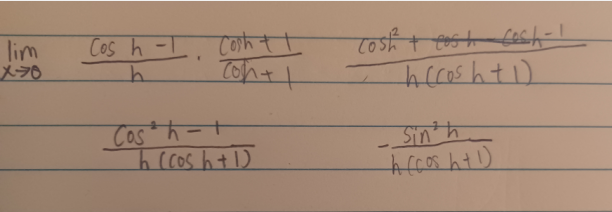 lim x→0 (cos h - 1)/h · (cosh + 1)/(coh + 1) (cosh² + cos h - cosh - 1)/(h(cos h + 1))
(cos² h - 1)/(h(cos h + 1)) -(sin² h)/(h(cos h + 1))